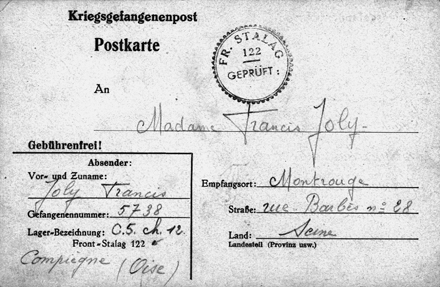 Kriegsgefangenenpost
Postkarte
FR. STALAG
122
GEPRÜFT:
An
Madame Francis Joly-
Gebührenfrei!
Absender:
Vor- und Zuname:
Joly Francis
Gefangenennummer: 5738
Lager-Bezeichnung: C.5. ch. 12.
Front-Stalag 122
Compiègne (Oise)
Empfangsort: Montrouge
Straße: rue Barbès n° 28
Land: Seine
Landesteil (Provinz usw.)